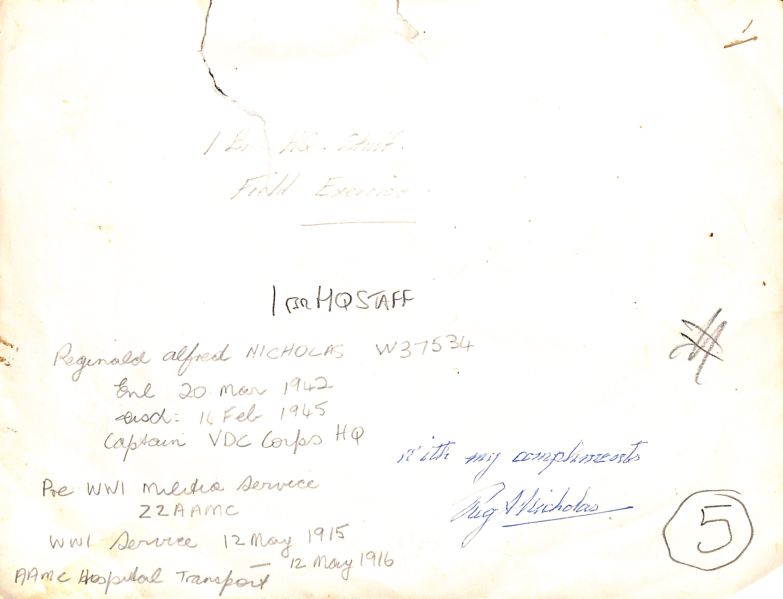 1
1 Bn HQ. Staff.
Field Exercise
1 BR HQ STAFF
Reginald Alfred NICHOLAS W37534
Enl 20 Mar 1942
Disd: 14 Feb 1945
Captain VDC Corps HQ
With my compliments
Reg Nicholas
Pre WWI Militia Service
22AAMC
WWI Service 12 May 1915
— 12 May 1916
AAMC Hospital Transport
5